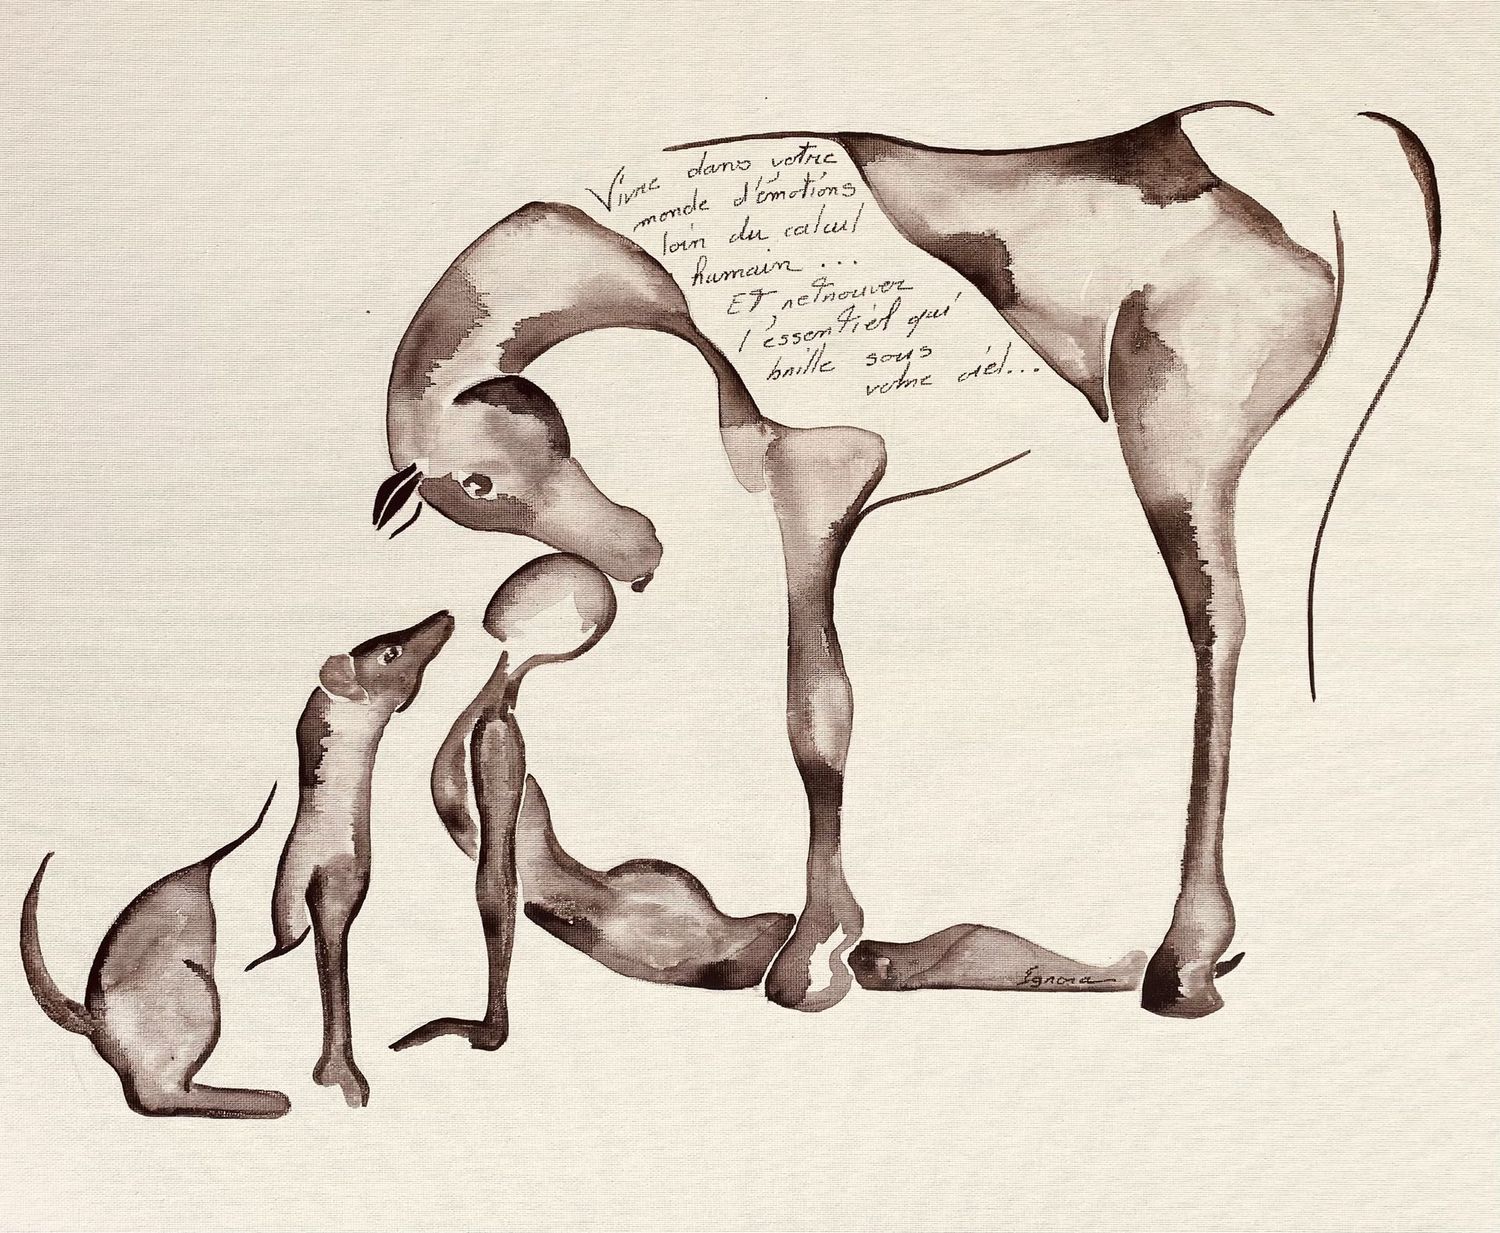 Vivre dans votre
monde d'émotions
loin du calcul
humain ...
Et retrouver
l'essentiel qui
brille sous
votre ciel...
Ignora